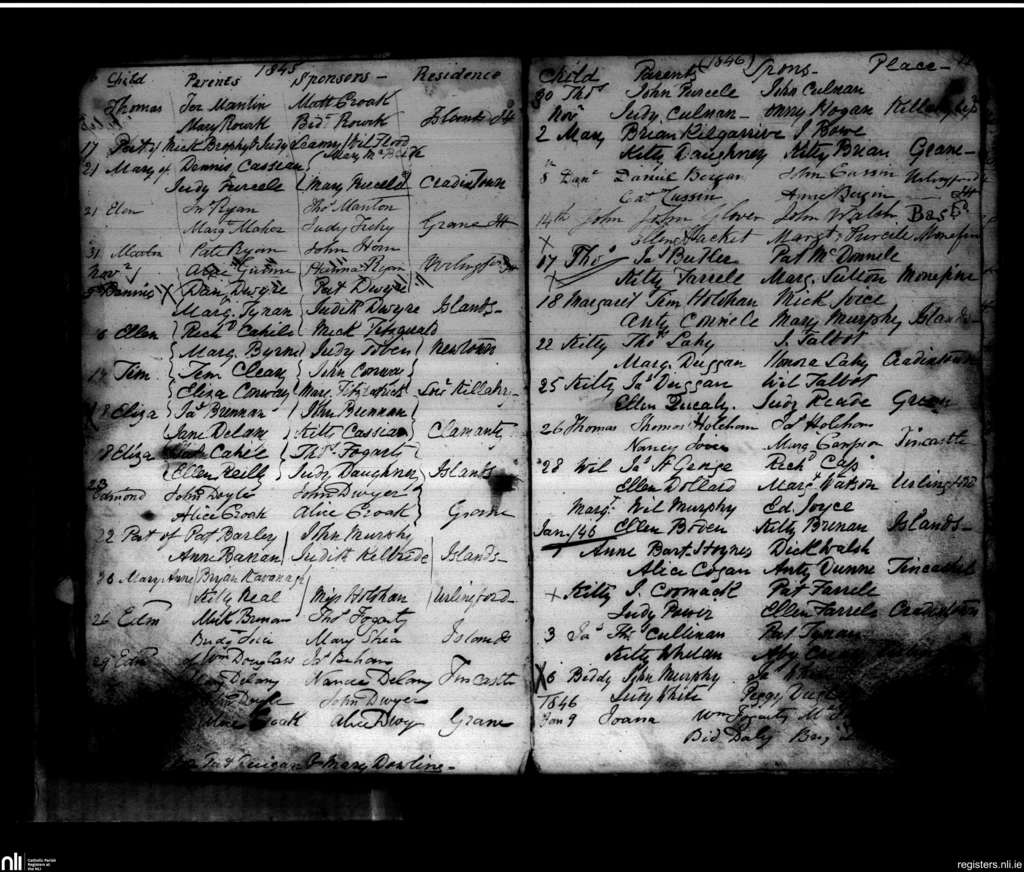 1845
Child Parents Sponsors - Residence
Thomas Jas Mantin Matt Croak
Mary Rowk Bid. Rowk Islands
17 Pat of Mick Brophy & Judy Leamy Wil Flood
21 Mary of Dennis Cassian
Judy Purcele Mary Purcele Cradintown
21 Elen Jn Ryan Thos Manton
Marg Maher Judy Grane
31 Pate Ryan John Horn
Novr Hanna Ryan
Dan Dwyre Pat Dwyre
Marg. Tynan Judith Dwyre Islands-
6 Ellen Richd Cahile Mick Fitzgerald
Marg. Byrne Judy Tobin Newtown
14 Tim Tim. Cleary John Conway
Eliza Conway Mary Fitzpatrick Killahy-
18 Eliza Jas Brennan John Brennan
Jane Delany Kitty Cassian Clamanty
18 Eliza Cahile Thos. Fogarty
Ellen Reilly Judy Daughney Islands
23
Edmond John Doyle John Dwyer
Alice Croak Alice Croak Grane
22 Pat of Pat Barley John Murphy
Anne Banan Judith Kelbride Islands-
26 Mary Anne Bryan Kavanagh
Kitty Neal Miss Holohan Urlingford-
26 Edm Mick Brenan Thos Fogarty
Bridgt Mary Shea Islands
29 Edm of Wm Douglass Jas
Delany Nancie Delany Tincastle
Doyle John Dwyer
Alice Croak Alice Dwyr Grane
Pat & Mary Dowling-
(1846)
Child Parents Spons- Place-
30 Thos John Purcele John Culman
Novr Judy Culman- Honry Hogan Killahy
2 Mary Brian Kilgarrive J. Bowe
Kitty Daughney Kitty Brian Grane-
8 Danl Daniel Bergin John Cassin Urlingford
Cat. Cussin Anne Bergin
14th John John Glover John Walsh Basd
Ellen Hacket Margt Purcele Monefin
17 Thos Jas Butler Pat McDonnele
Kitty Farrele Marg. Sutton Monefine
18 Margaret Tim Holohan Mick Joice
Anty Connele Mary Murphy Islands-
22 Kitty Thos Lahy J. Talbot
Marg. Duggan Honora Lahy Cradintown
25 Kitty Jas Duggan Wil Talbot
Ellen Quealy. Judy Reade Green
26 Thomas Thomas Holoham Jas Holoham
Nancy Joice Marg Tincastle
28 Wil Jas St George Richd
Ellen Dollard Margt Watson Urlingford
Margt Wil Murphy Ed. Joyce
Jan. /46 Ellen Boden Kitty Brenan Islands-
Anne Bart Hoynes Dick Walsh
Alice Cogan Anty Dunne Tincastle
Kitty J. Cormack Pat Farrele
Judy Power Ellen Farrele Cradintown
3 Jas Thos Cullinan Pat Tynan
Kitty Whelan
6 Biddy John Murphy
1846 Judy White Peggy
Jan 9 Joana Wm Fogarty
Bid Daly
nli Catholic Parish Registers at the NLI
registers.nli.ie